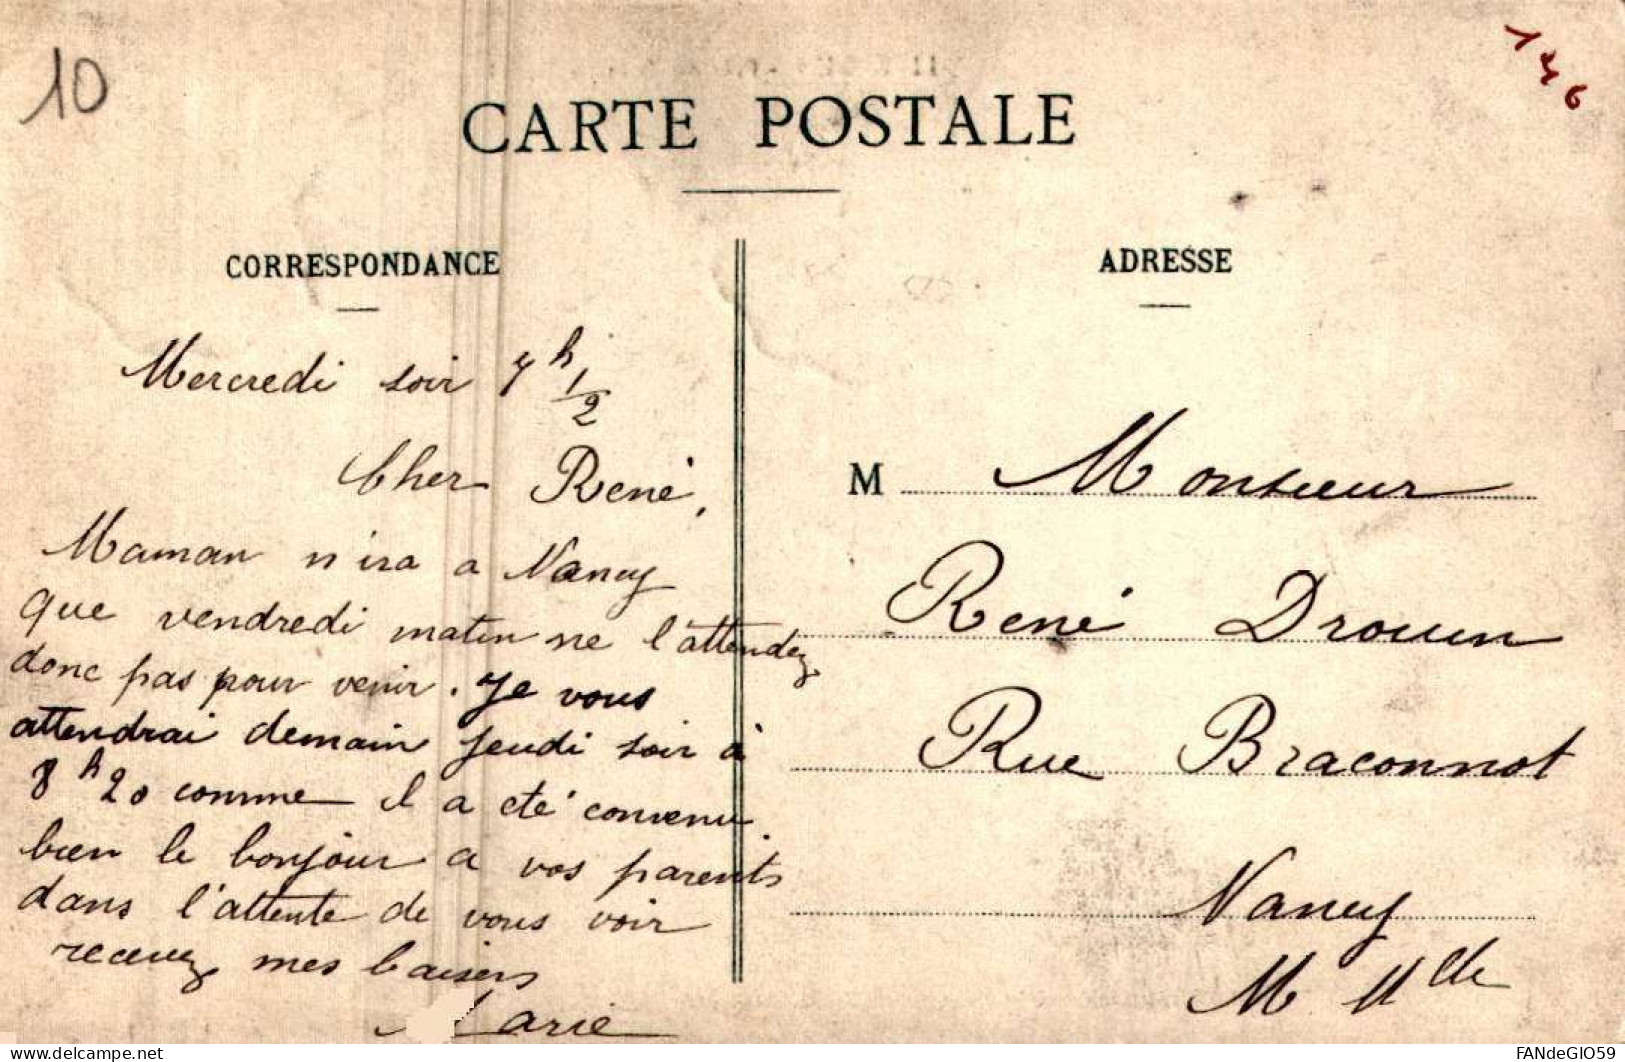 10
146
CARTE POSTALE
CORRESPONDANCE
Mercredi soir 7h 1/2
Cher René,
Maman n'ira a Nancy
que vendredi matin ne l'attendez
donc pas pour venir. Je vous
attendrai demain jeudi soir à
8h20 comme il a été convenu.
bien le bonjour a vos parents
dans l'attente de vous voir
recevez mes baisers
Marie
ADRESSE
M Monsieur
René Drouin
Rue Braconnot
Nancy
M Mlle
www.delcampe.net
FANdeGIO59